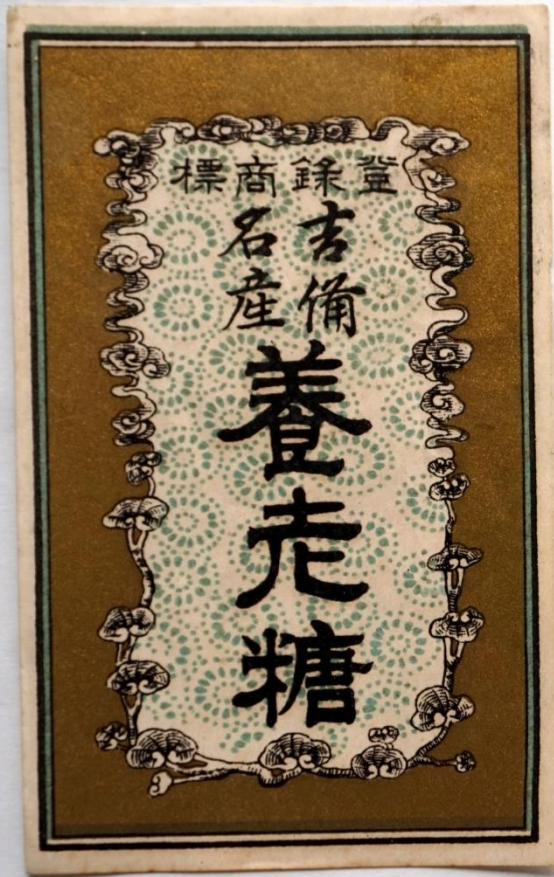 登録商標
吉備
名産
養老糖